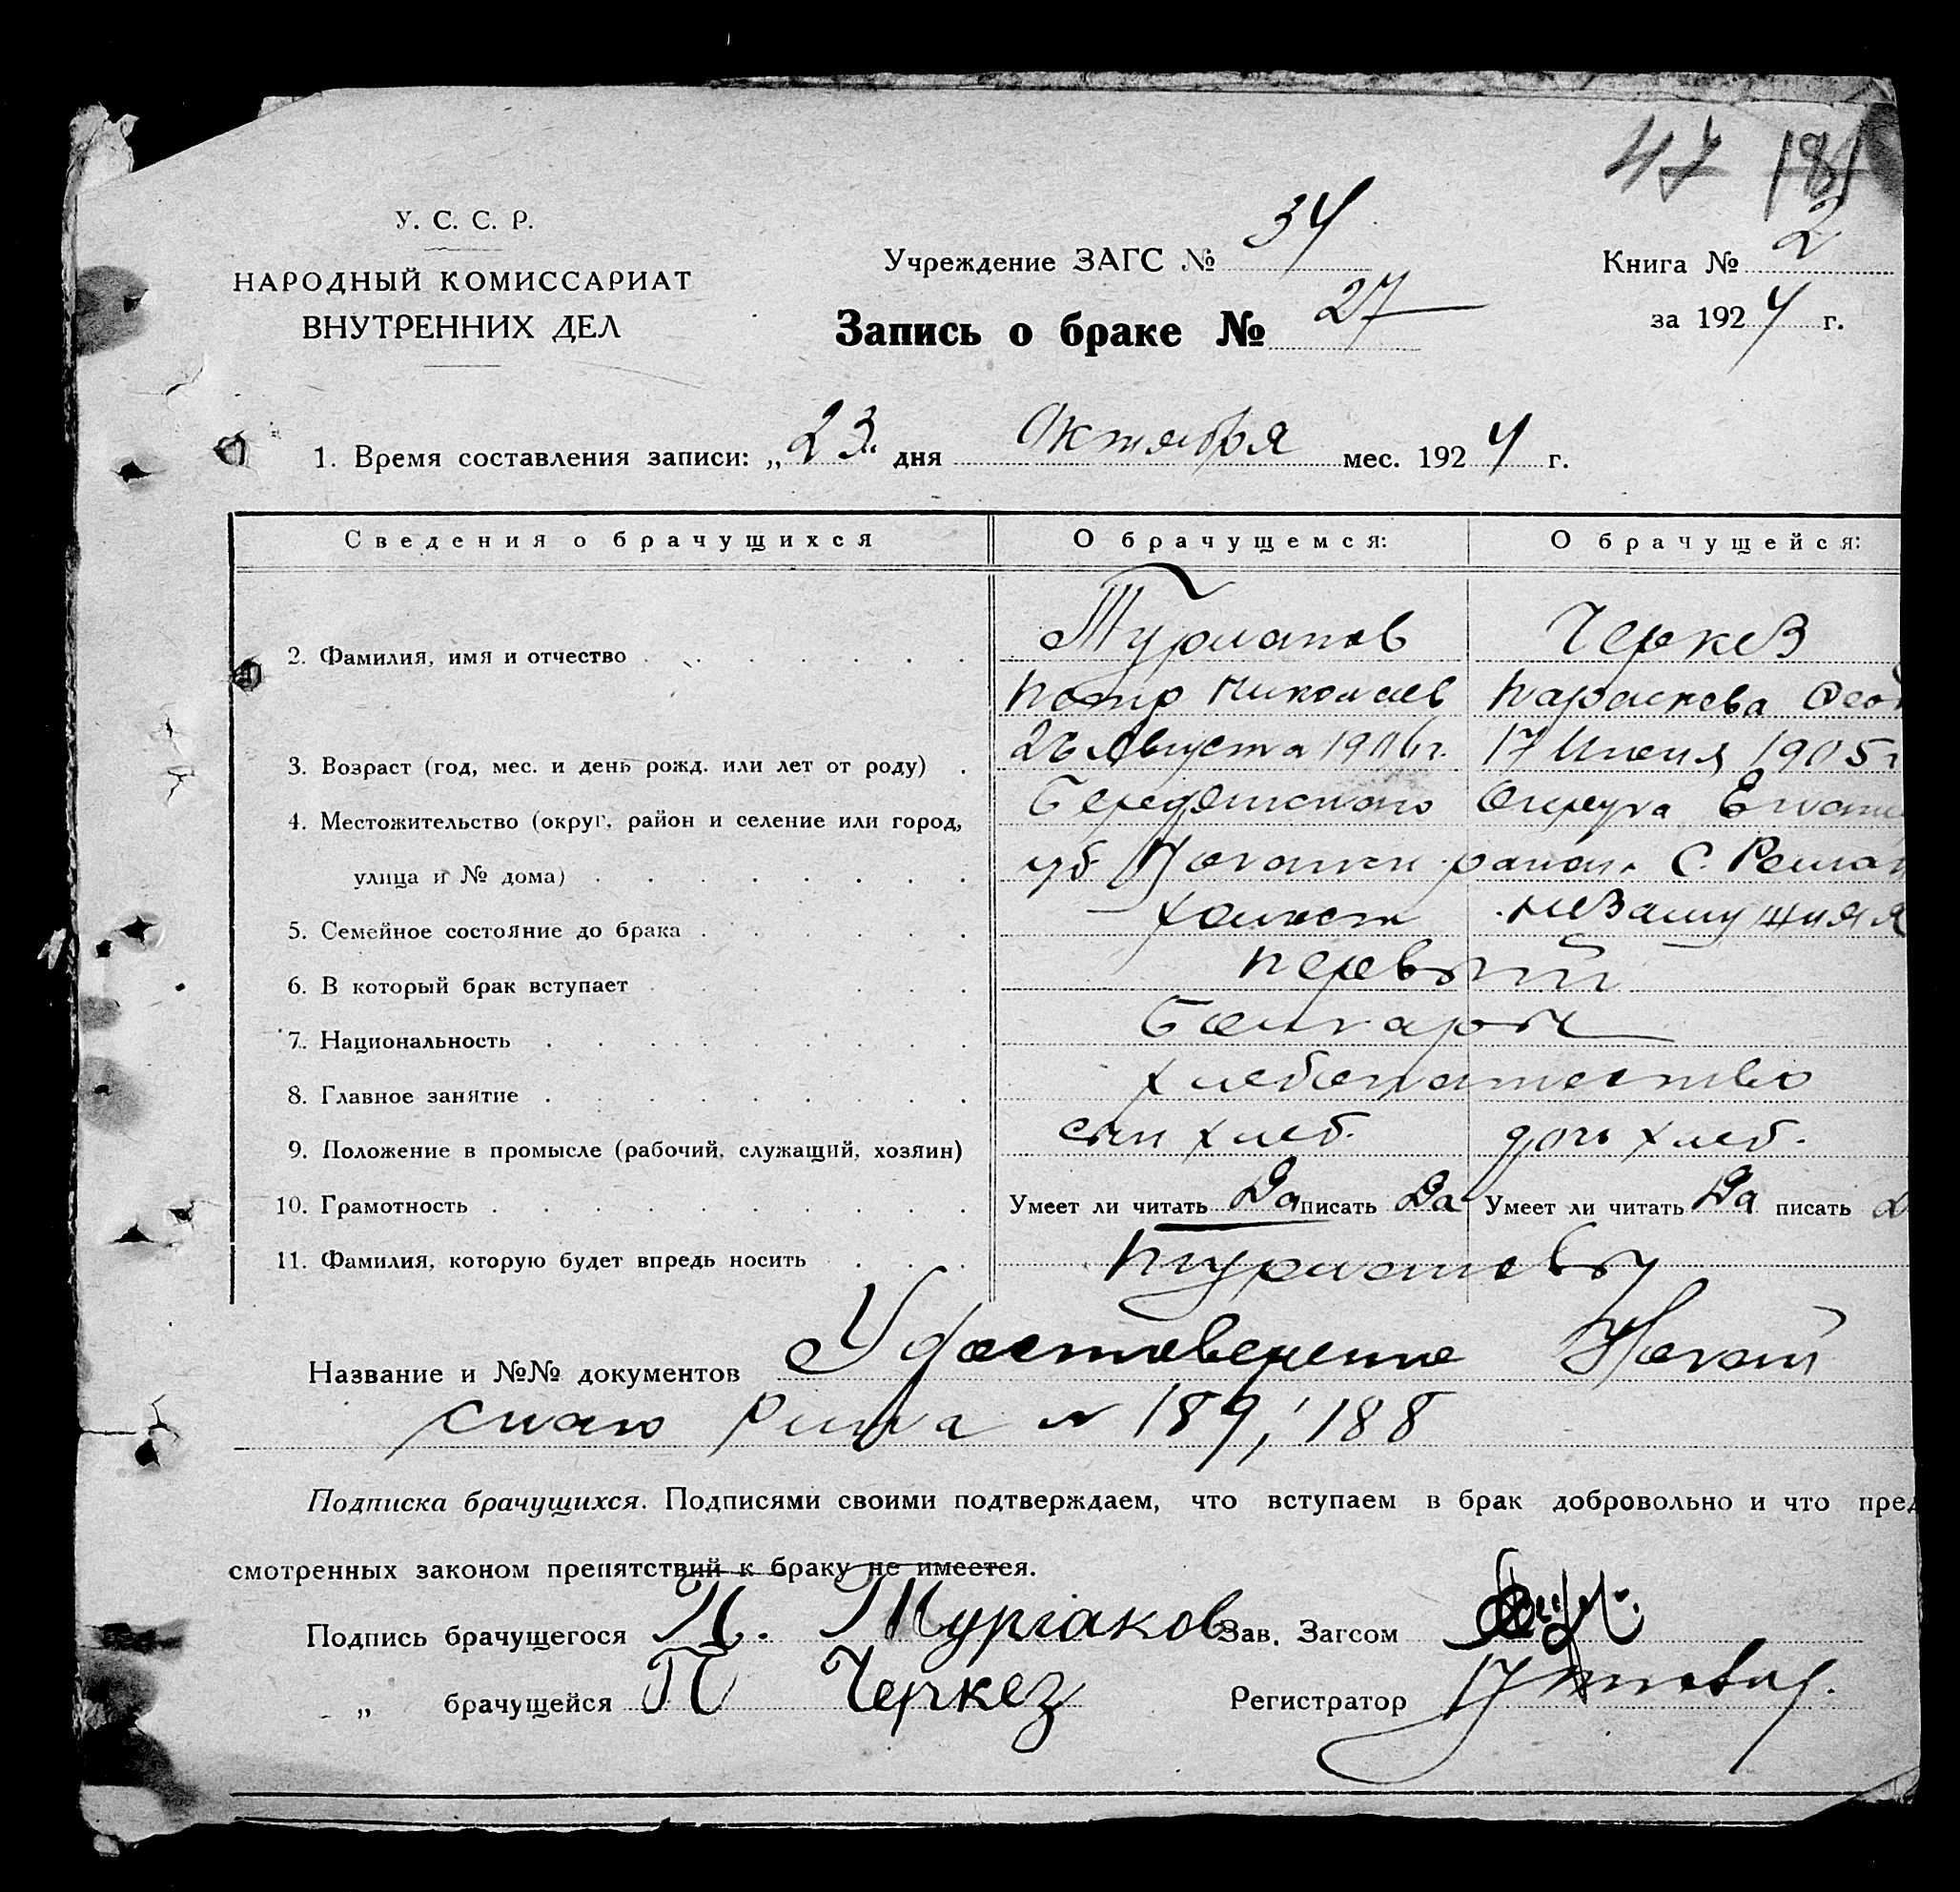 47 181
У. С. С. Р.
НАРОДНЫЙ КОМИССАРИАТ
ВНУТРЕННИХ ДЕЛ
Учреждение ЗАГС № 34
Запись о браке № 27
Книга № 2
за 1924 г.
1. Время составления записи: „23“ дня Октября мес. 1924 г.
Сведения о брачущихся О брачущемся: О брачущейся:
2. Фамилия, имя и отчество Черкез
Петр Николаев Параскева Феод
3. Возраст (год, мес. и день рожд. или лет от роду) Августа 1906 г. 17 1905 г
4. Местожительство (округ, район и селение или город, округа
улица и № дома) губ района С.
5. Семейное состояние до брака холост незамужняя
6. В который брак вступает первый
7. Национальность Болгары
8. Главное занятие хлебопашество
9. Положение в промысле (рабочий, служащий, хозяин) сын хлеб. дочь хлеб.
10. Грамотность Умеет ли читать Да писать Да Умеет ли читать Да писать
11. Фамилия, которую будет впредь носить
Название и №№ документов Удостоверение Ногай
ского Рика № 189, 188
Подписка брачущихся. Подписями своими подтверждаем, что вступаем в брак добровольно и что пред
смотренных законом препятствий к браку не имеется.
Подпись брачущегося П. Зав. Загсом
„ брачущейся П Черкез Регистратор